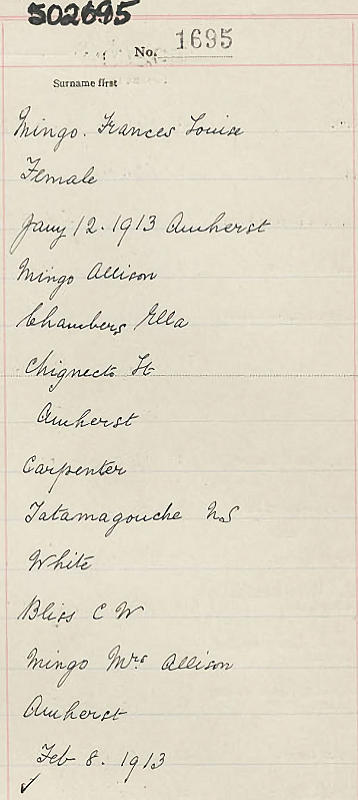 502695
No. 1695
Surname first
Mingo. Frances Louise
Female
Jany 12. 1913 Amherst
Mingo Allison
Chambers Ella
Chignecto St
Amherst
Carpenter
Tatamagouche NS
White
Bliss C W
Mingo Mrs Allison
Amherst
Feb 8. 1913
✓